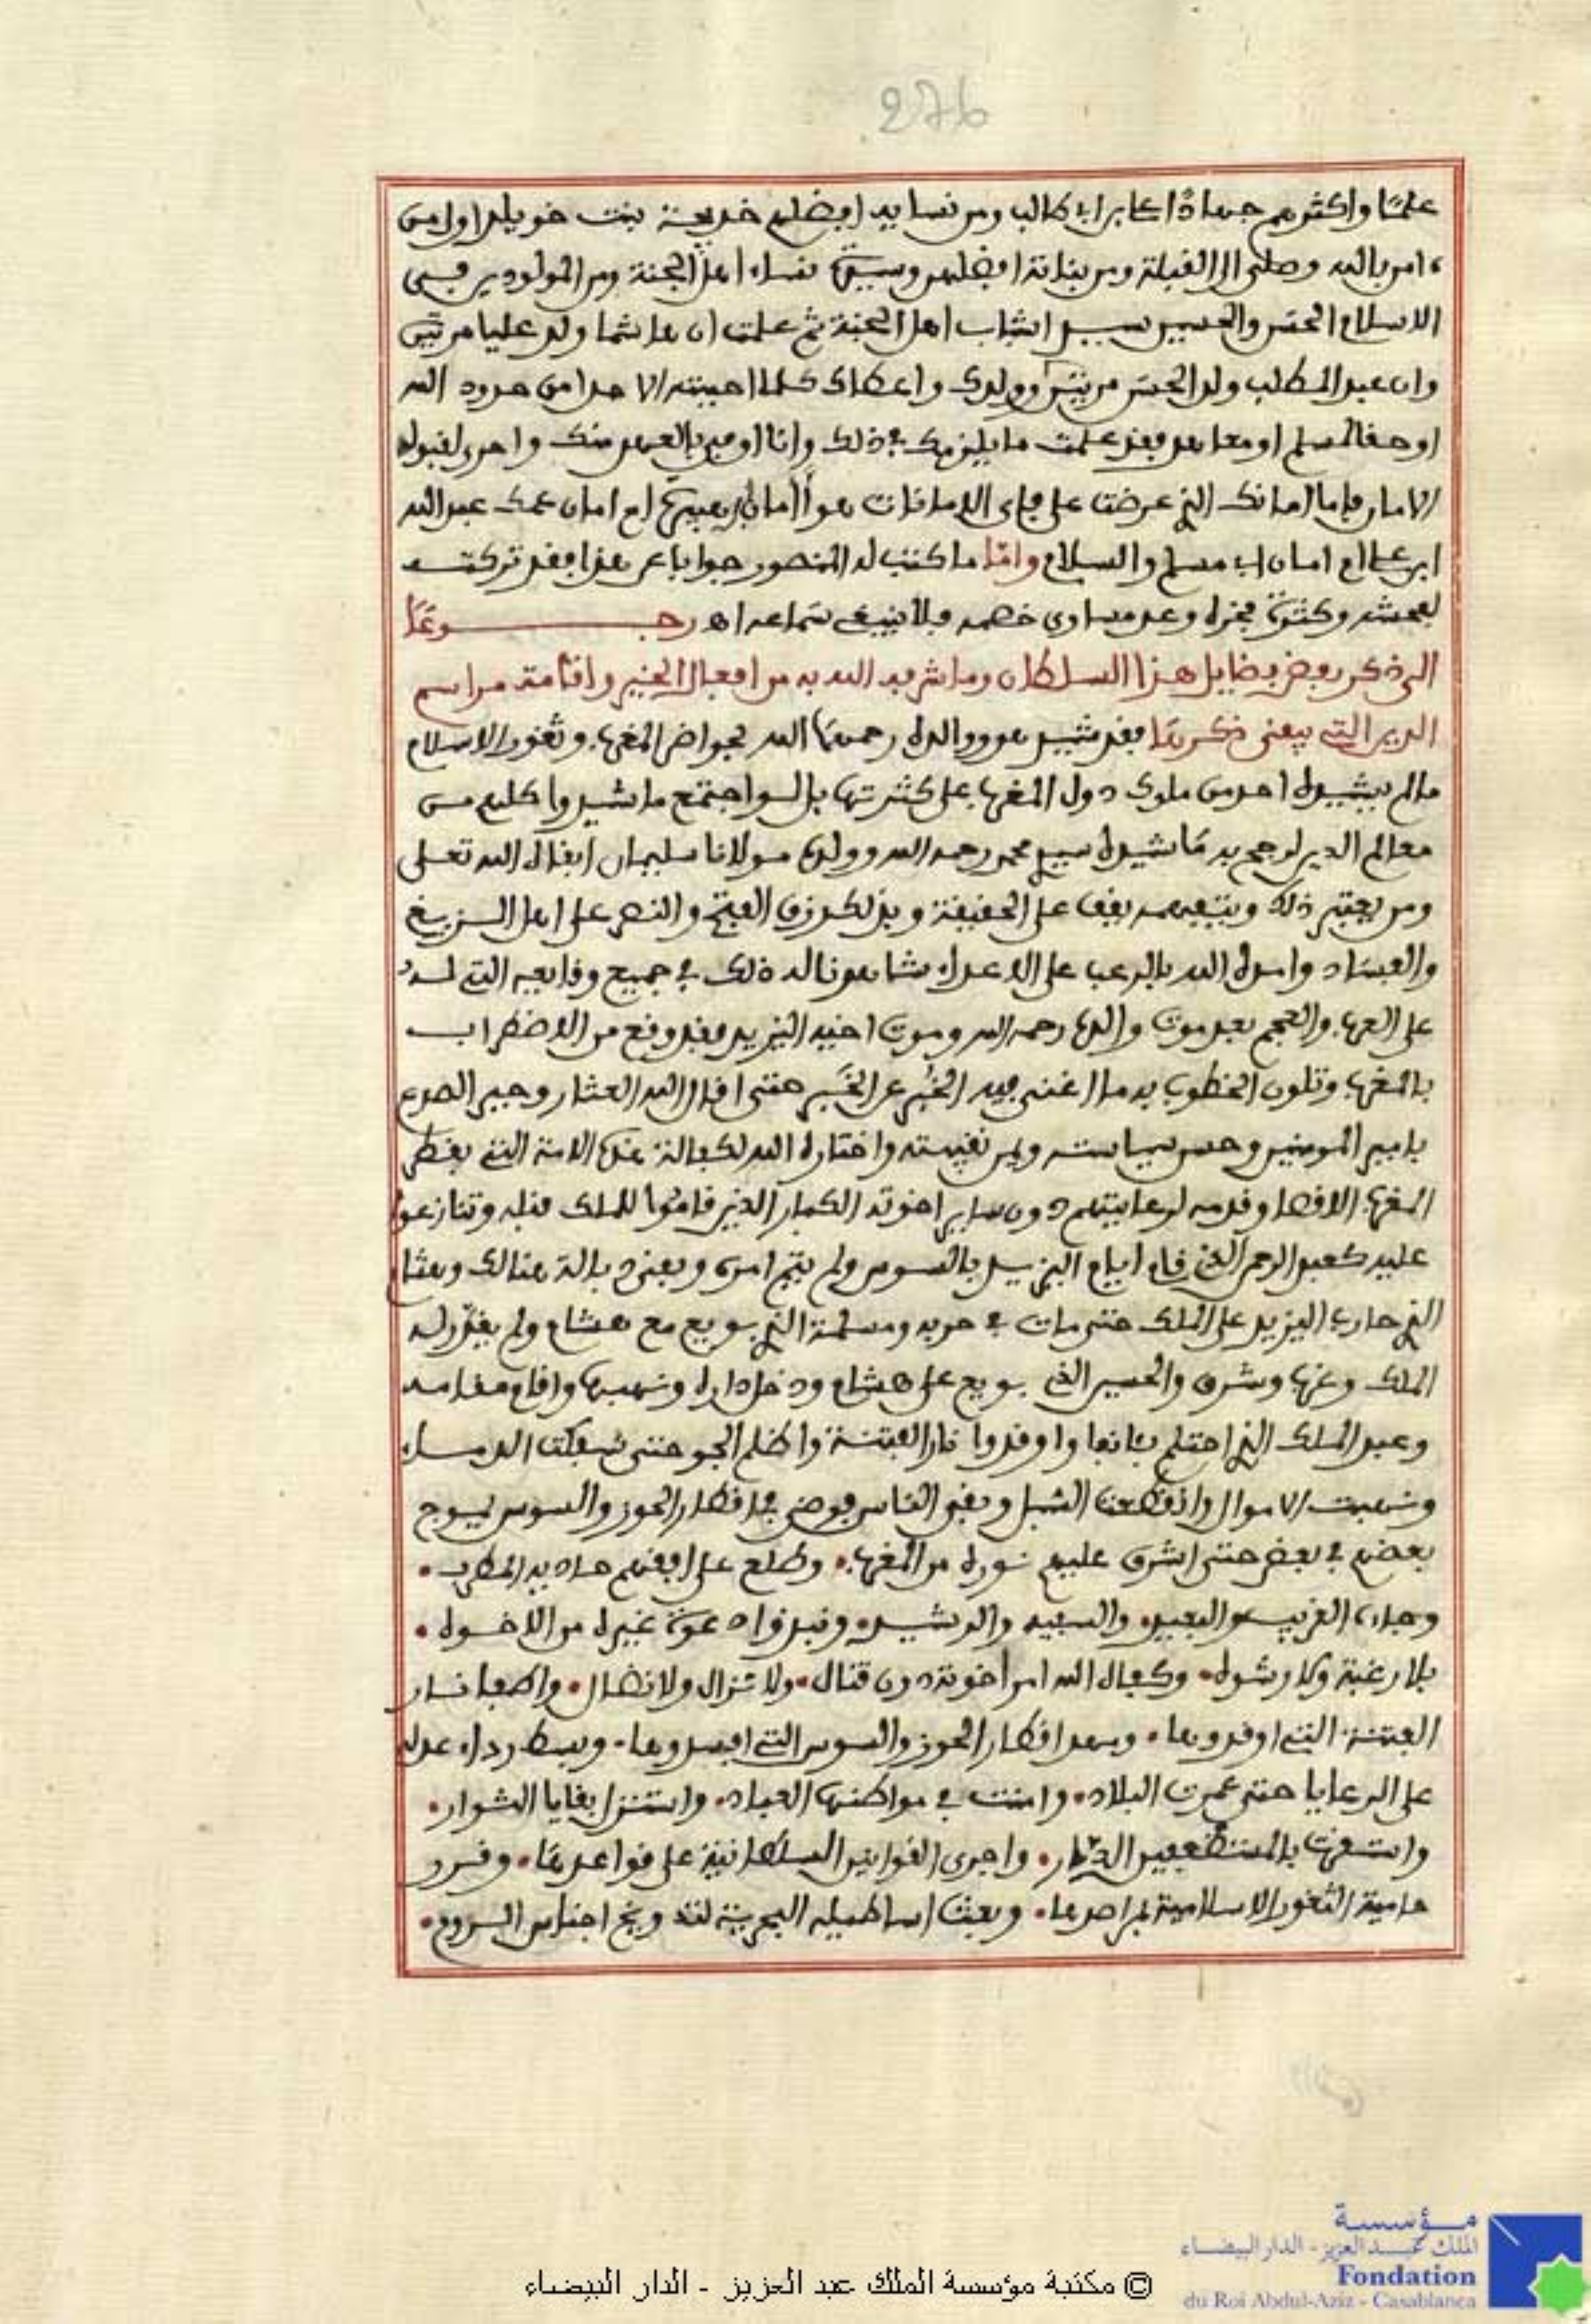 276
علما واكثرهم جهادا علي بن ابي طالب ومن نسايه افضلهم خديجة بنت خويلد اول من
ءامن بالله وصلى الى القبلة ومن بناته افضلهن وسيدة نساء اهل الجنة ومن المولودين في
الاسلام الحسن والحسين سيدا شباب اهل الجنة ثم علمت ان هاشما ولد عليا مرتين
وان عبد المطلب ولد الحسن مرتين وولدى واعطاك كلما احببته الا حدا من حدود الله
او حقا لمسلم او معاهد فقد علمت ما يلزمك في ذلك وانا اوفى بالعهد منك واحرى لقبول
الامان فاما امانك الذي عرضت علي فاى الامانات هو اامان ابن هبيرة ام امان عمك عبد الله
ابن علي ام امان ابي مسلم والسلام واما ما كتب له المنصور جوابا عن هذا فقد تركته
لفحشه وكثرة فخره وعد مساوى خصمه فلا ينبغي سماعه اهـ رجـــوعا
الى ذكر بعض فضايل هذا السلطان وما شرفه الله به من افعال الخير واقامة مراسم
الدين التي يبقى ذكرها فقد شيد هو ووالده رحمهما الله بحواضر المغرب وثغور الاسلام
ما لم يشيده احد من ملوك دول المغرب على كثرتها بل لو اجتمع ما شيدوا كلهم من
معالم الدين لرجح به ما شيده سيدي محمد رحمه الله وولده مولانا سليمان ابقاه الله تعلى
ومن يعتبر ذلك ويتتبعه يقف على الحقيقة وبذلك رزق الفتح والنصر على اهل الزيغ
والفساد وامده الله بالرعب على الاعداء شاهدنا له ذلك في جميع وقايعه التي له
على العرب والعجم بعد موت والده رحمه الله وموت اخيه اليزيد فقد وقع من الاضطراب
بالمغرب وتلون الخطوب به ما اغنى فيه الخبر عن الخبر حتى اقال الله العثار وجبر الصدع
بامير المومنين وحسن سياسته ويمن نقيبته واختاره الله لكفالة هذه الامة التي بقطر
المغرب الاقصا وقدمه لرعايتهم دون ساير اخوته الكبار الذين قاموا للملك قبله وتنازعوا
عليه كعبد الرحمن الذي قام ايام اليزيد بالسوس ولم يتم امره وبقي هنالك وهشام
الذي حارب اليزيد على الملك حتى مات في حربه ومسلمة الذي بويع مع هشام ولم يقدر له
الملك وغرب وشرق والحسين الذي بويع على هشام ودخل داره ونهبها واقام مقامه
وعبد الملك الذي احتلم بعانفا واوقدوا نار الفتنة واظلم الجو حتى سفكت الدماء
ونهبت الاموال وانقطعت السبل وبقي الناس فوضى في اقطار الحوز والسوس يموج
بعضهم في بعض حتى اشرق عليهم نوره من المغرب. وطلع على افقهم هاديه المطرب.
وجاءه القريب والبعيد. والسفيه والرشيد. ونبذوا دعوة غيره من الاخوة.
بلا رغبة ولا رشوة. وكفاه الله امر اخوته دون قتال. ولا نزال ولا نضال. واطفا نار
الفتنة التي اوقدوها. ومهد اقطار الحوز والسوس التي افسدوها. وبسط رداء عدله
على الرعايا حتى عمرت البلاد. وامنت في مواطنها العباد. واستنزل بقايا الثوار.
وانتصف بالمستضعفين الديار. واجرى القوانين السلطانية على قواعدها. وقرر
حامية الثغور الاسلامية لمراصدها. وبعث اساطيله البحرية لتدويخ اجناس الروم.
مؤسسة
الملك عبد العزيز - الدار البيضاء
Fondation
du Roi Abdul-Aziz - Casablanca
© مكتبة مؤسسة الملك عبد العزيز - الدار البيضاء